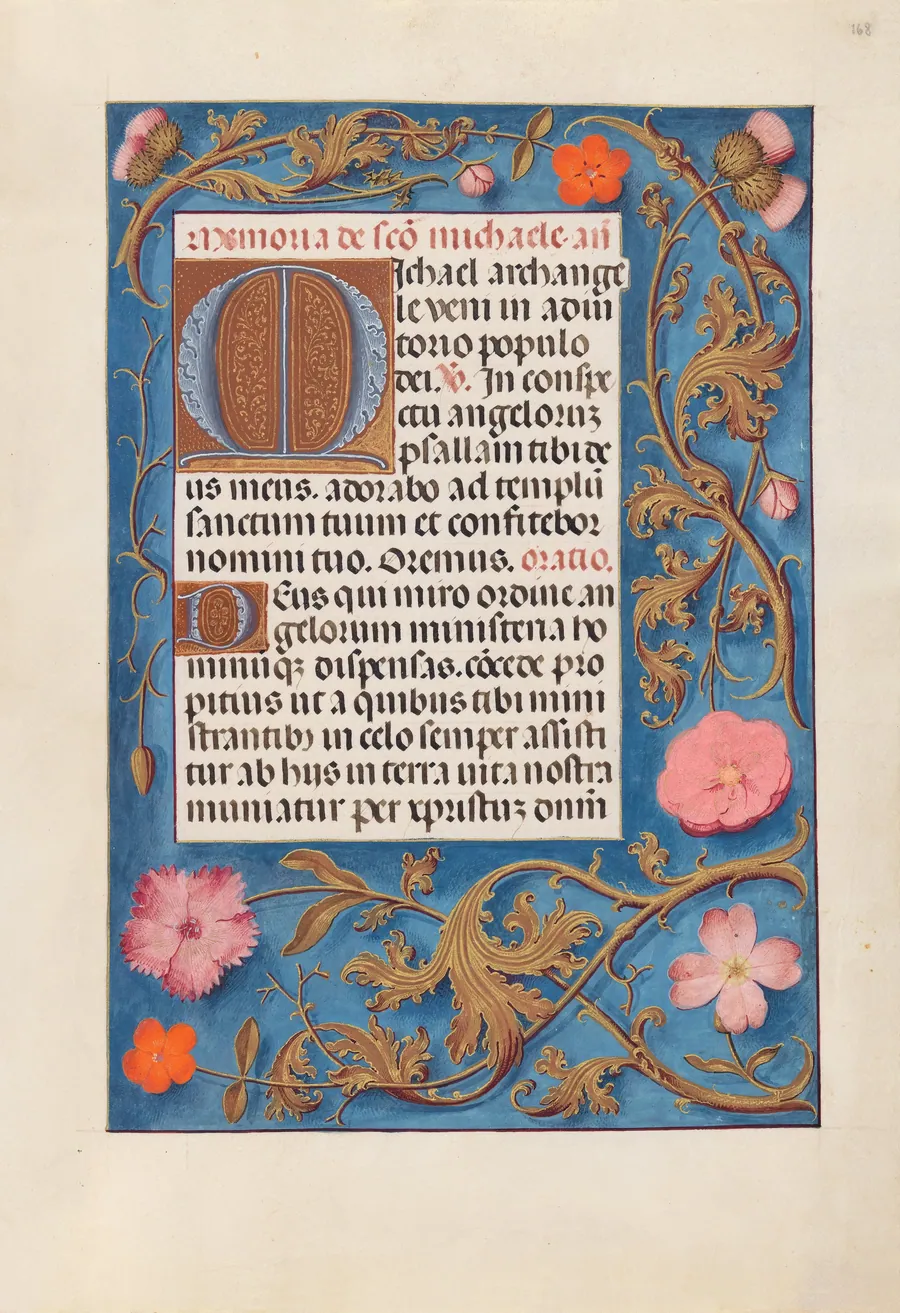 168
Memoria de scō michaele. añ
Michael archange
le veni in adiu
torio populo
dei. ℣. In conspe
ctu angeloruꝫ
psallam tibi de
us meus. adorabo ad templū
sanctum tuum et confitebor
nomini tuo. Oremus. oratio.
Deus qui miro ordine an
gelorum ministeria ho
minūqꝫ dispensas. cōcede pro
pitius ut a quibus tibi mini
strantibꝫ in celo semper assisti
tur ab hijs in terra uita nostra
muniatur per xpristuꝫ dnm̄